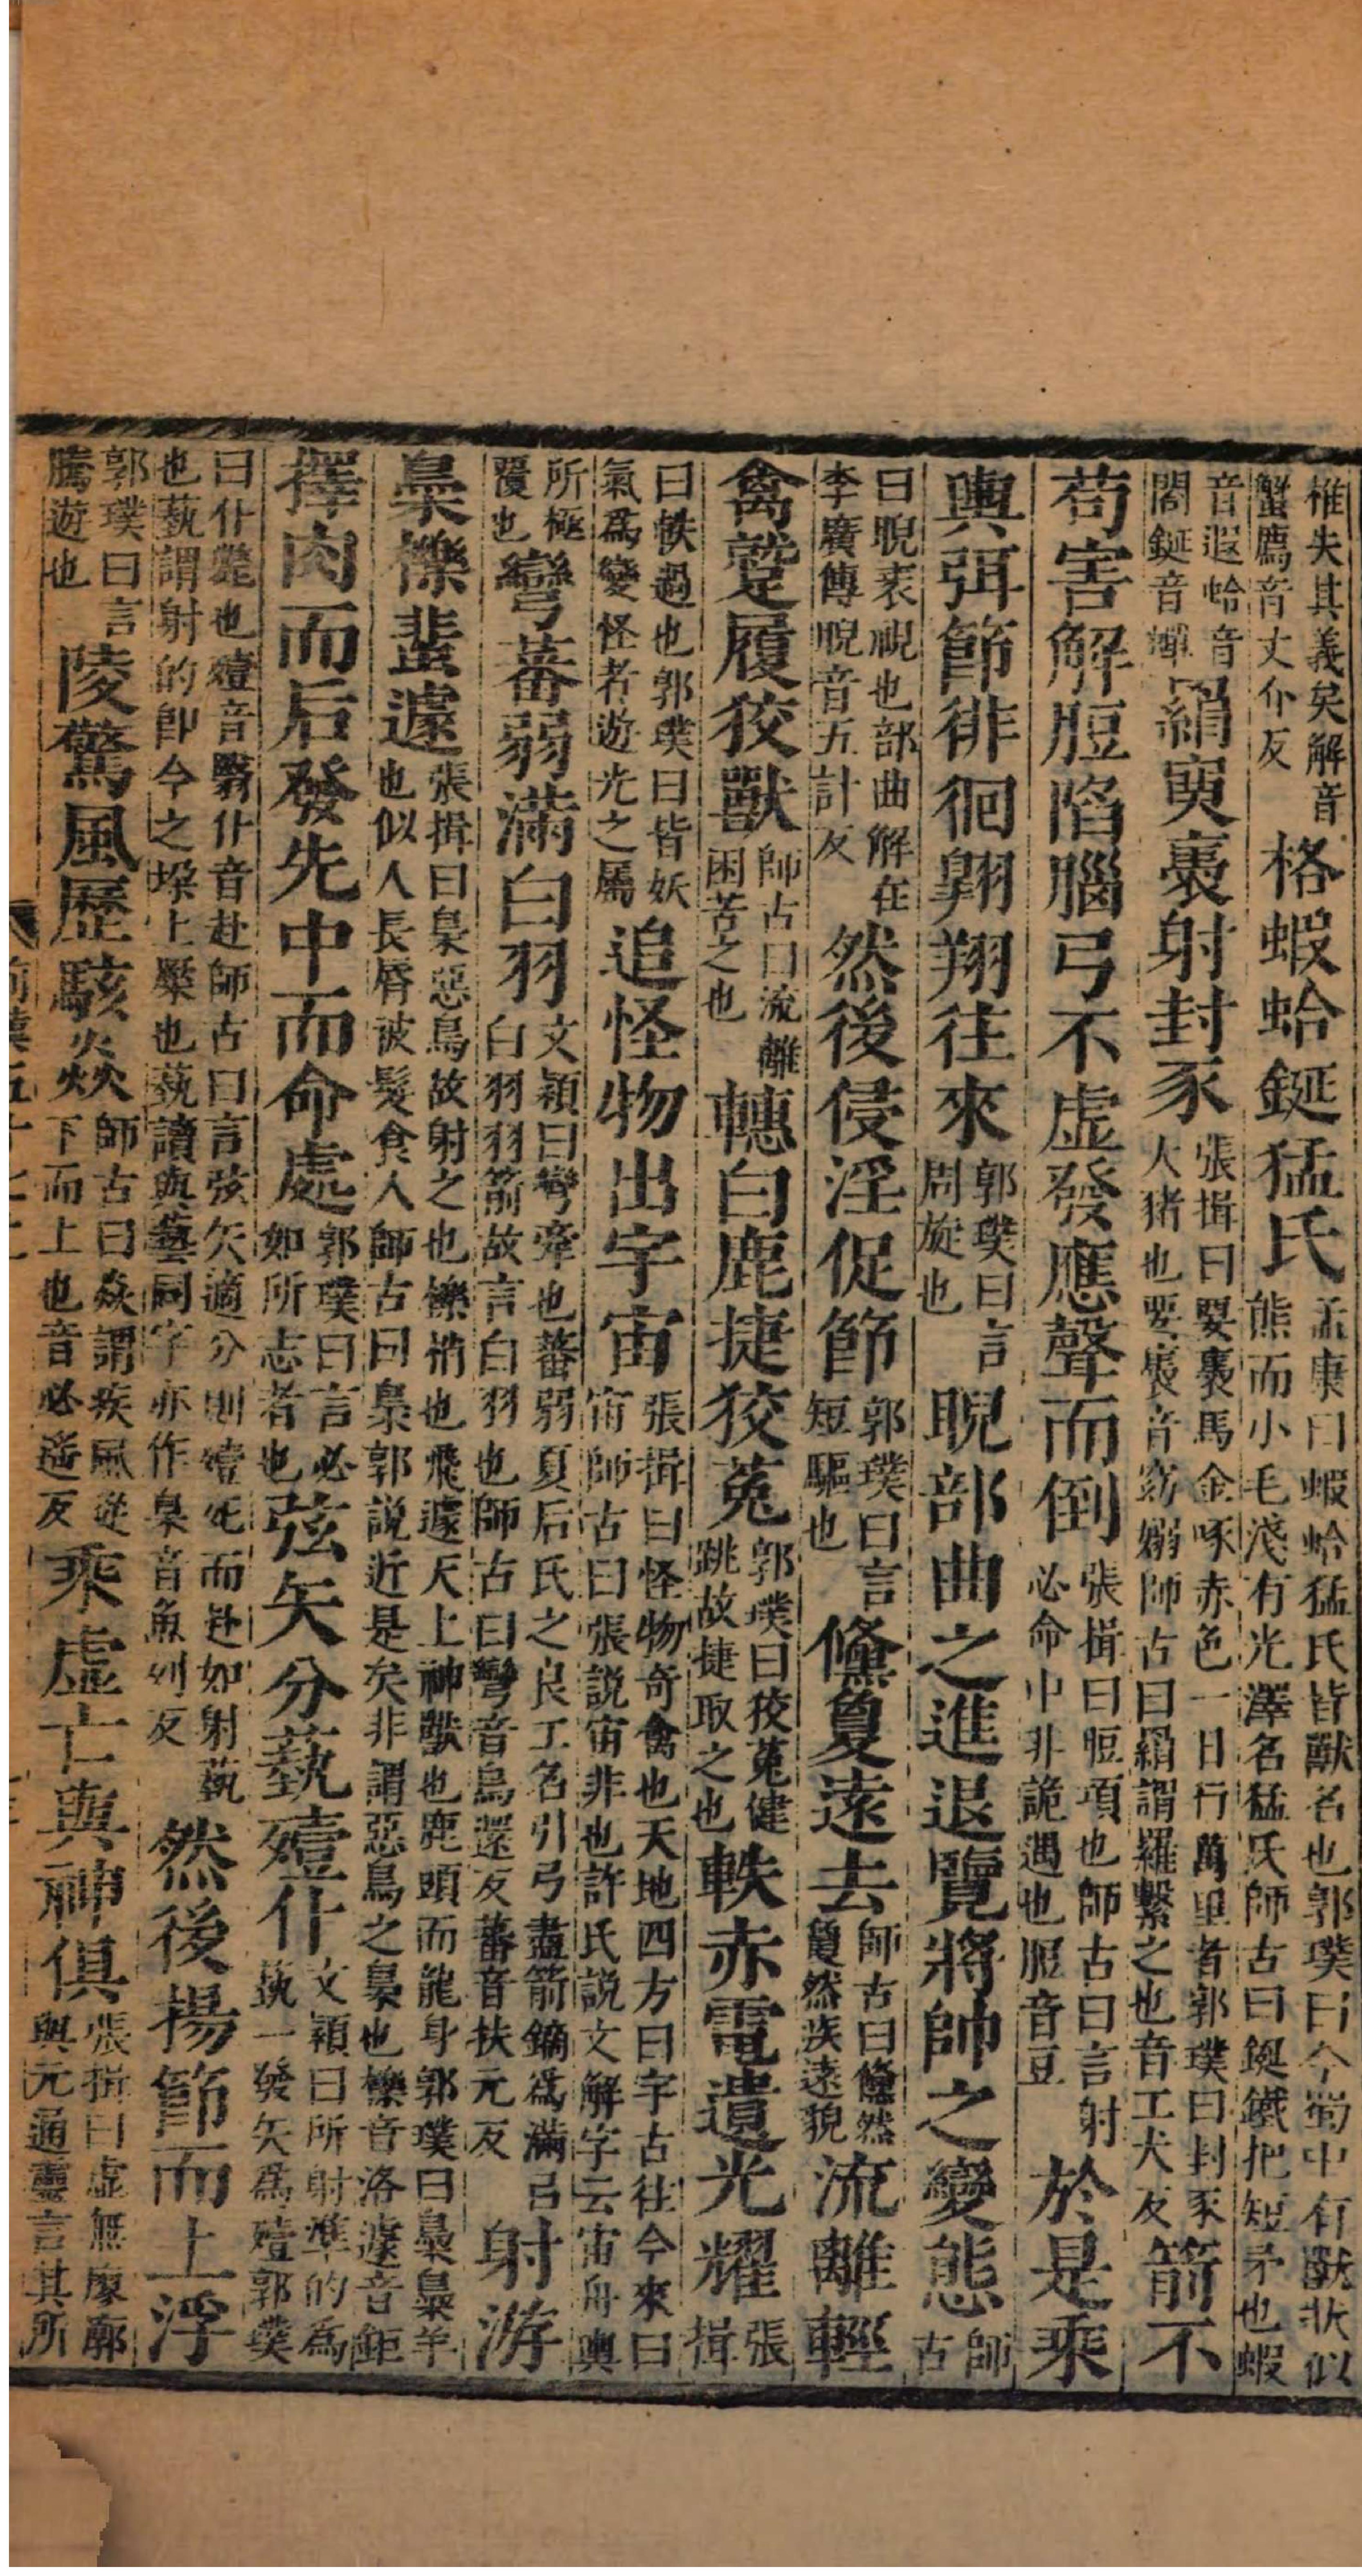 椎失其義矣解音蟹廌音丈介反格蝦蛤鋋猛氏孟康曰蝦蛤猛氏皆獸名也郭璞曰今蜀中有獸狀似熊而小毛淺有光澤名猛氏師古曰鋋鐵把短矛也蝦
音遐蛤音閤鋋音蟬羂䮍褭射封豕張揖曰騕褭馬金喙赤色一日行萬里者郭璞曰封豕大猪也要褭音窈嫋師古曰羂謂羅繫之也音工犬反箭不
苟害解脰陷腦弓不虛發應聲而倒張揖曰脰項也師古曰言射必命中非詭遇也脰音豆於是乘
輿弭節徘徊翱翔往來郭璞曰言周旋也睨部曲之進退覽將帥之變態師古
曰睨衺視也部曲解在李廣傳睨音五計反然後侵淫促節郭璞曰言短驅也儵夐遠去師古曰儵然夐然疾遠貌流離輕
禽蹵履狡獸師古曰流離困苦之也轊白鹿捷狡菟郭璞曰狡菟健跳故捷取之也軼赤電遺光耀張揖
曰軼過也郭璞曰皆妖氣爲變怪者遊光之屬追怪物出宇宙張揖曰怪物奇禽也天地四方曰宇古往今來曰宙師古曰張說宙非也許氏說文解字云宙舟輿
所極覆也彎蕃弱滿白羽文穎曰彎牽也蕃弱夏后氏之良工名引弓盡箭鏑爲滿弓白羽羽箭故言白羽也師古曰彎音烏還反蕃音扶元反射游
梟櫟蜚遽張揖曰梟惡鳥故射之也櫟梢也飛遽天上神獸也鹿頭而龍身郭璞曰梟梟羊也似人長脣被髮食人師古曰梟郭說近是矣非謂惡鳥之梟也櫟音洛遽音鉅
擇肉而后發先中而命處郭璞曰言必如所志者也弦矢分藝殪仆文穎曰所射準的爲藝一發矢爲殪郭璞
曰仆斃也殪音翳仆音赴師古曰言弦矢適分則殪死而赴如射藝也藝謂射的卽今之垜上橜也藝讀與藝同字亦作臬音魚列反然後揚節而上浮
郭璞曰言騰遊也陵驚風歷駭猋師古曰猋謂疾風從下而上也音必遙反乘虛亡與神俱張揖曰虛無廖廓與元通靈言其所